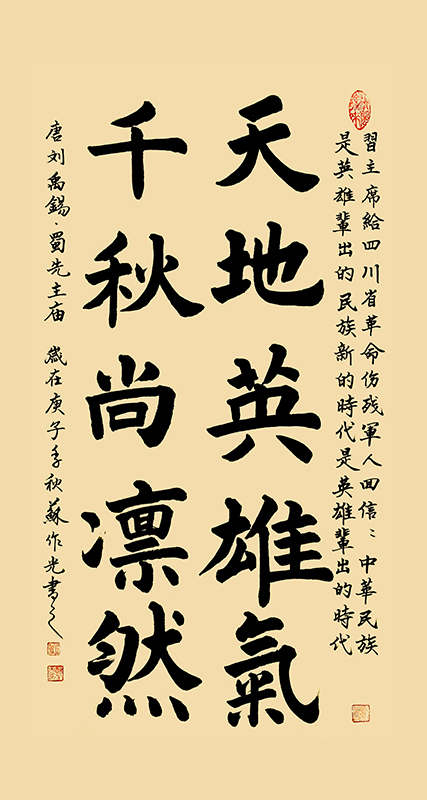 習主席給四川省革命伤残軍人回信：中華民族
是英雄輩出的民族新的時代是英雄輩出的時代
天地英雄氣
千秋尚凛然
唐刘禹錫·蜀先主庙 歲在庚子季秋蘇作光書之